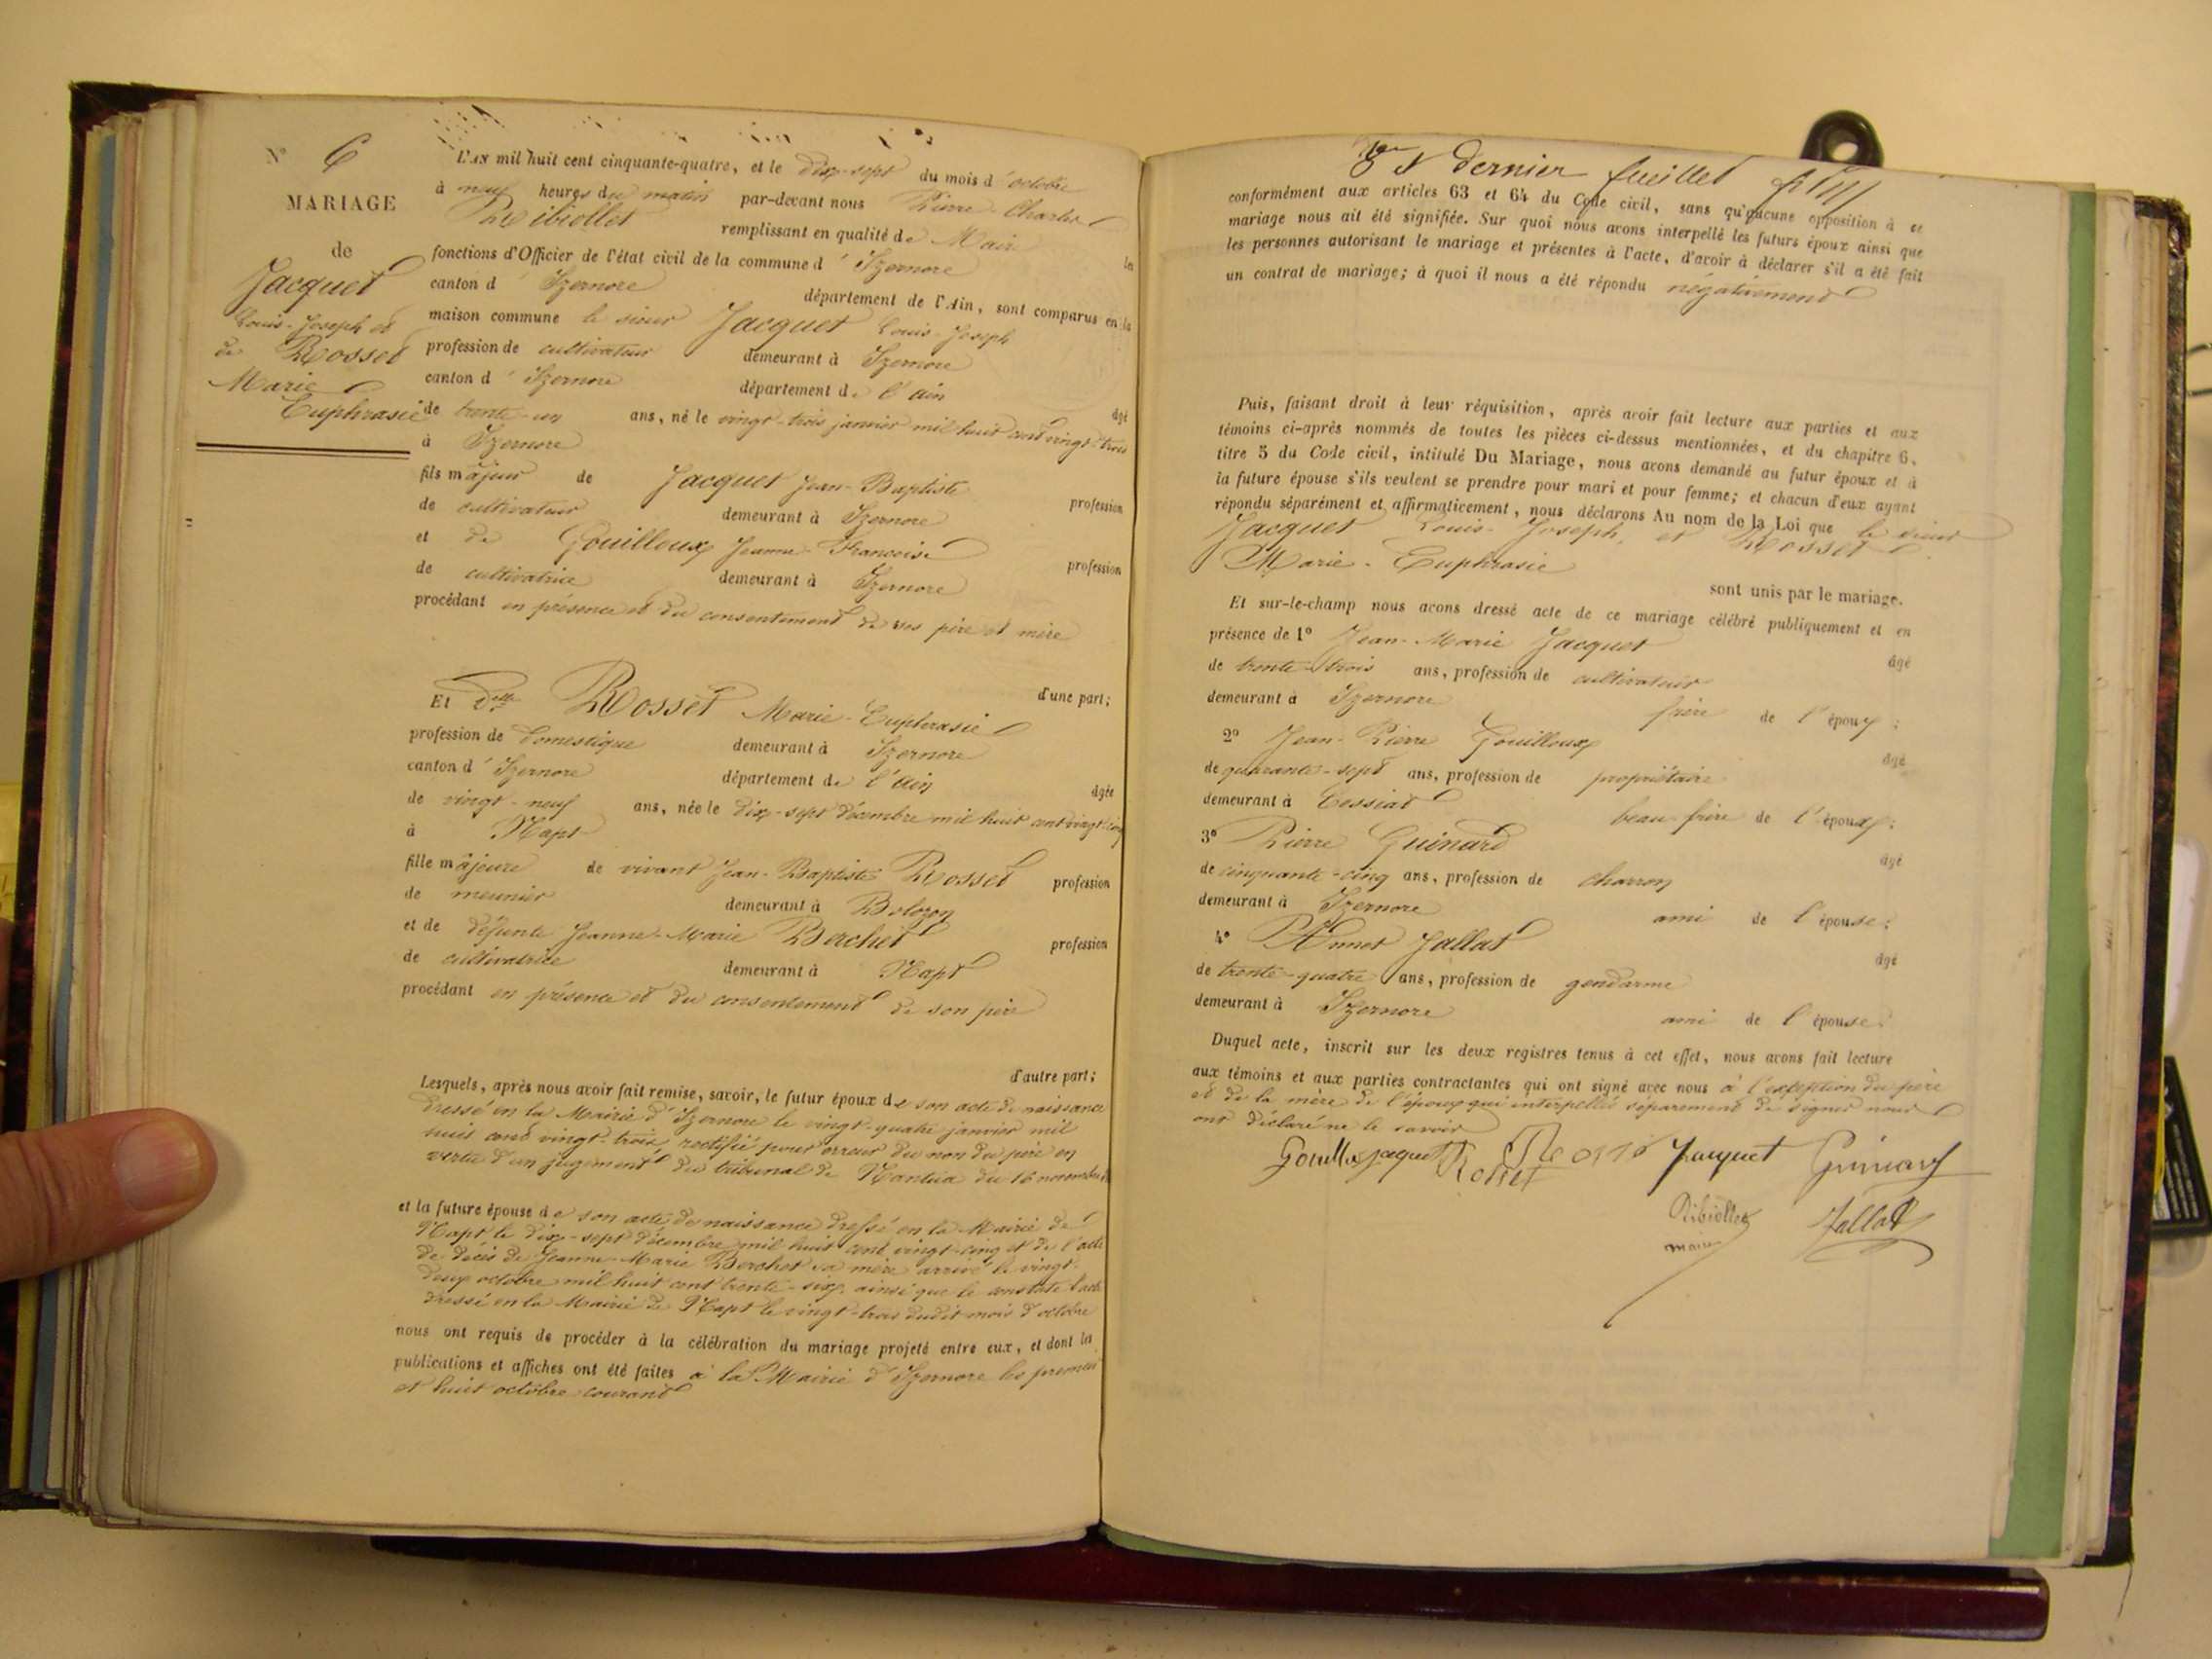 N° 6
MARIAGE
de
Jacquet
Louis-Joseph et
de Rosset
Marie
Euphrasie
L'AN mil huit cent cinquante-quatre, et le dix-sept du mois d'octobre
à neuf heures du matin par-devant nous Pierre-Charles
Ribiollet remplissant en qualité de Maire les
fonctions d'Officier de l'état civil de la commune d'Izernore
canton d'Izernore département de l'Ain, sont comparus en la
maison commune le sieur Jacquet Louis-Joseph
profession de cultivateur demeurant à Izernore
canton d'Izernore département de l'ain âgé
de trente-un ans, né le vingt-trois janvier mil huit cent vingt-trois
à Izernore
fils majeur de Jacquet Jean-Baptiste profession
de cultivateur demeurant à Izernore
et de Gouilloux Jeanne-Françoise profession
de cultivatrice demeurant à Izernore
procédant en présence et du consentement de ses père et mère
d'une part;
Et Dlle Rosset Marie-Euphrasie
profession de domestique demeurant à Izernore
canton d'Izernore département de l'ain âgée
de vingt-neuf ans, née le dix-sept décembre mil huit cent vingt-cinq
à Napt
fille majeure de vivant Jean-Baptiste Rosset profession
de meunier demeurant à Bolozon
et de défunte Jeanne-Marie Berchet profession
de cultivatrice demeurant à Napt
procédant en présence et du consentement de son père
d'autre part;
Lesquels, après nous avoir fait remise, savoir, le futur époux de son acte de naissance
dressé en la Mairie d'Izernore le vingt-quatre janvier mil
huit cent vingt-trois, rectifié pour erreur du nom du père en
vertu d'un jugement du tribunal de Nantua du 16 novembre
et la future épouse de son acte de naissance dressé en la Mairie de
Napt le dix-sept décembre mil huit cent vingt-cinq et de l'acte
de décès de Jeanne-Marie Berchet sa mère arrivé le vingt-
deux octobre mil huit cent trente-six, ainsi que le constate l'acte
dressé en la Mairie de Napt le vingt-trois dudit mois d'octobre
nous ont requis de procéder à la célébration du mariage projeté entre eux, et dont les
publications et affiches ont été faites à la Mairie d'Izernore les premier
et huit octobre courant
dernier feuillet
conformément aux articles 63 et 64 du Code civil, sans qu'aucune opposition à ce
mariage nous ait été signifiée. Sur quoi nous avons interpellé les futurs époux ainsi que
les personnes autorisant le mariage et présentes à l'acte, d'avoir à déclarer s'il a été fait
un contrat de mariage; à quoi il nous a été répondu négativement
Puis, faisant droit à leur réquisition, après avoir fait lecture aux parties et aux
témoins ci-après nommés de toutes les pièces ci-dessus mentionnées, et du chapitre 6,
titre 5 du Code civil, intitulé Du Mariage, nous avons demandé au futur époux et à
la future épouse s'ils veulent se prendre pour mari et pour femme; et chacun d'eux ayant
répondu séparément et affirmativement, nous déclarons Au nom de la Loi que le sieur
Jacquet Louis-Joseph, et Rosset
Marie-Euphrasie
sont unis par le mariage.
Et sur-le-champ nous avons dressé acte de ce mariage célébré publiquement et en
présence de 1° Jean-Marie Jacquet âgé
de trente-trois ans, profession de cultivateur
demeurant à Izernore frère de l'époux;
2° Jean-Pierre Gouilloux âgé
de quarante-sept ans, profession de propriétaire
demeurant à Cessiat beau-frère de l'époux;
3° Pierre Guinard âgé
de cinquante-cinq ans, profession de charron
demeurant à Izernore ami de l'épouse;
4° Annet Jallat âgé
de trente-quatre ans, profession de gendarme
demeurant à Izernore ami de l'épouse.
Duquel acte, inscrit sur les deux registres tenus à cet effet, nous avons fait lecture
aux témoins et aux parties contractantes qui ont signé avec nous à l'exception du père
et de la mère de l'époux qui interpellés séparément de signer nous
ont déclaré ne le savoir
Gouilloux Jacquet Rosset Jacquet Guinard
Ribiollet Jallat
maire